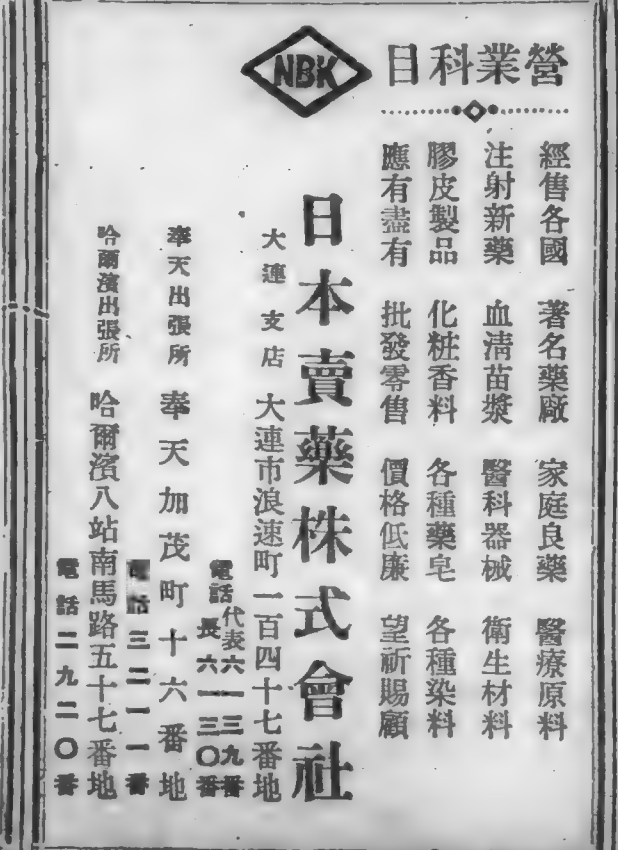 營業科目
NBK
經售各國 著名藥廠 家庭良藥 醫療原料
注射新藥 血淸苗漿 醫科器械 衛生材料
膠皮製品 化粧香料 各種藥皂 各種染料
應有盡有 批發零售 價格低廉 望祈賜顧
日本賣藥株式會社
大連支店 大連市浪速町一百四十七番地
電話 代表六一三九番
長六一三〇番
奉天出張所 奉天加茂町十六番地
電話三二一一番
哈爾濱出張所 哈爾濱八站南馬路五十七番地
電話二九二〇番